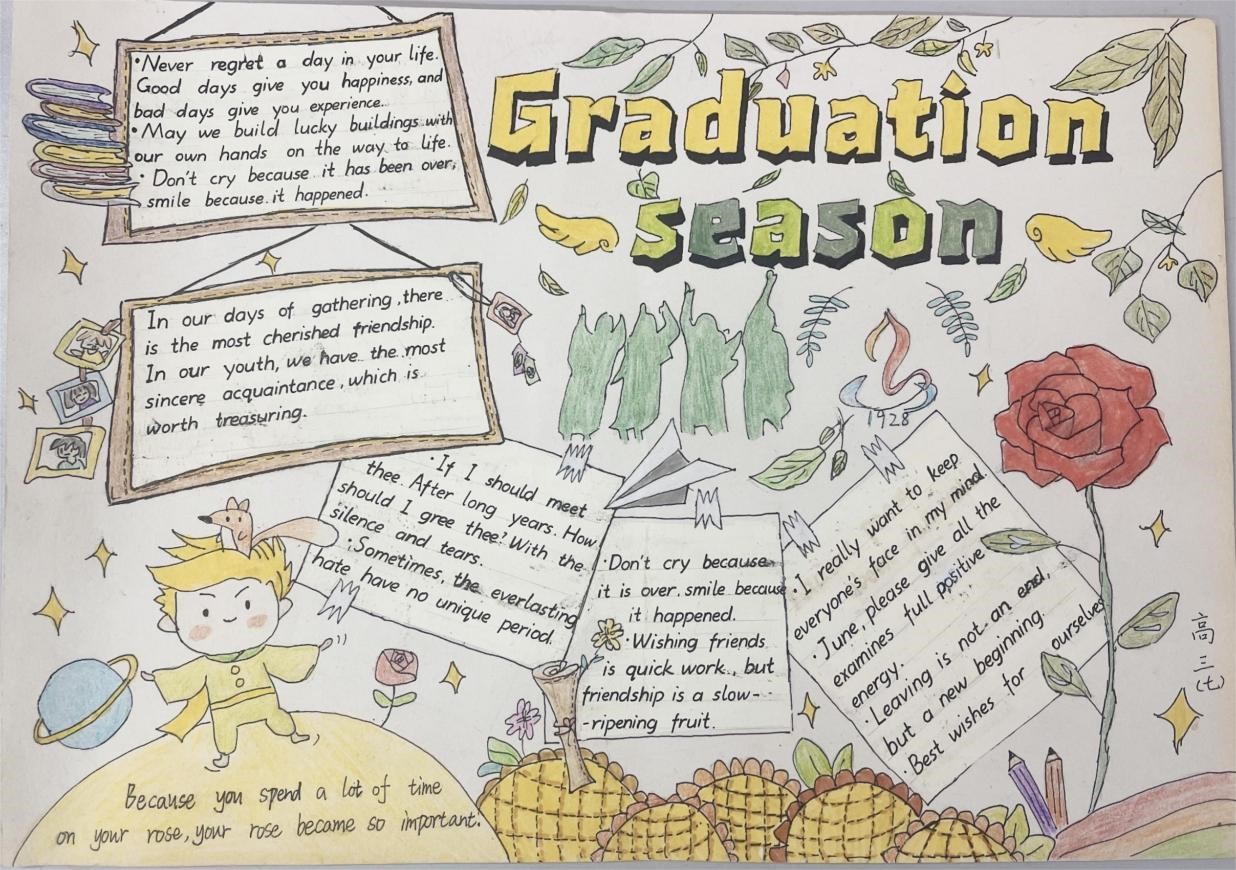 Graduation
season
·Never regret a day in your life.
Good days give you happiness, and
bad days give you experience.
·May we build lucky buildings with
our own hands on the way to life.
·Don't cry because it has been over,
smile because it happened.
In our days of gathering, there
is the most cherished friendship.
In our youth, we have the most
sincere acquaintance, which is
worth treasuring.
1928
·If I should meet
thee. After long years. How
should I gree thee? With the
silence and tears.
·Sometimes, the everlasting
hate have no unique period.
·Don't cry because
it is over. smile because
it happened.
·Wishing friends
is quick work, but
friendship is a slow-
-ripening fruit.
·I really want to keep
everyone's face in my mind.
·June, please give all the
examines full positive
energy.
·Leaving is not an end,
but a new beginning.
·Best wishes for ourselves
高三(七)
Because you spend a lot of time
on your rose, your rose became so important!